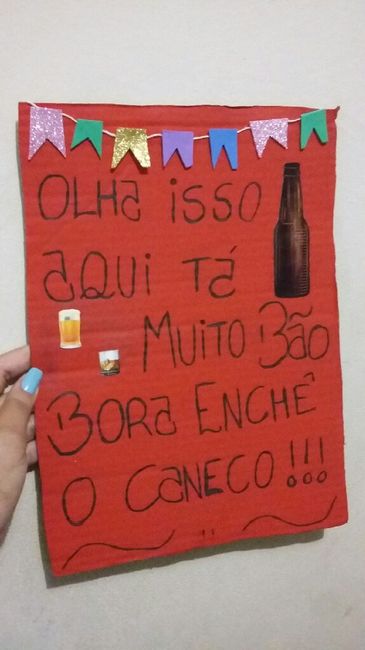 OLHa isso
aQUI TÁ
MUiTO Bão
BORa ENCHÊ
O CaNECO!!!